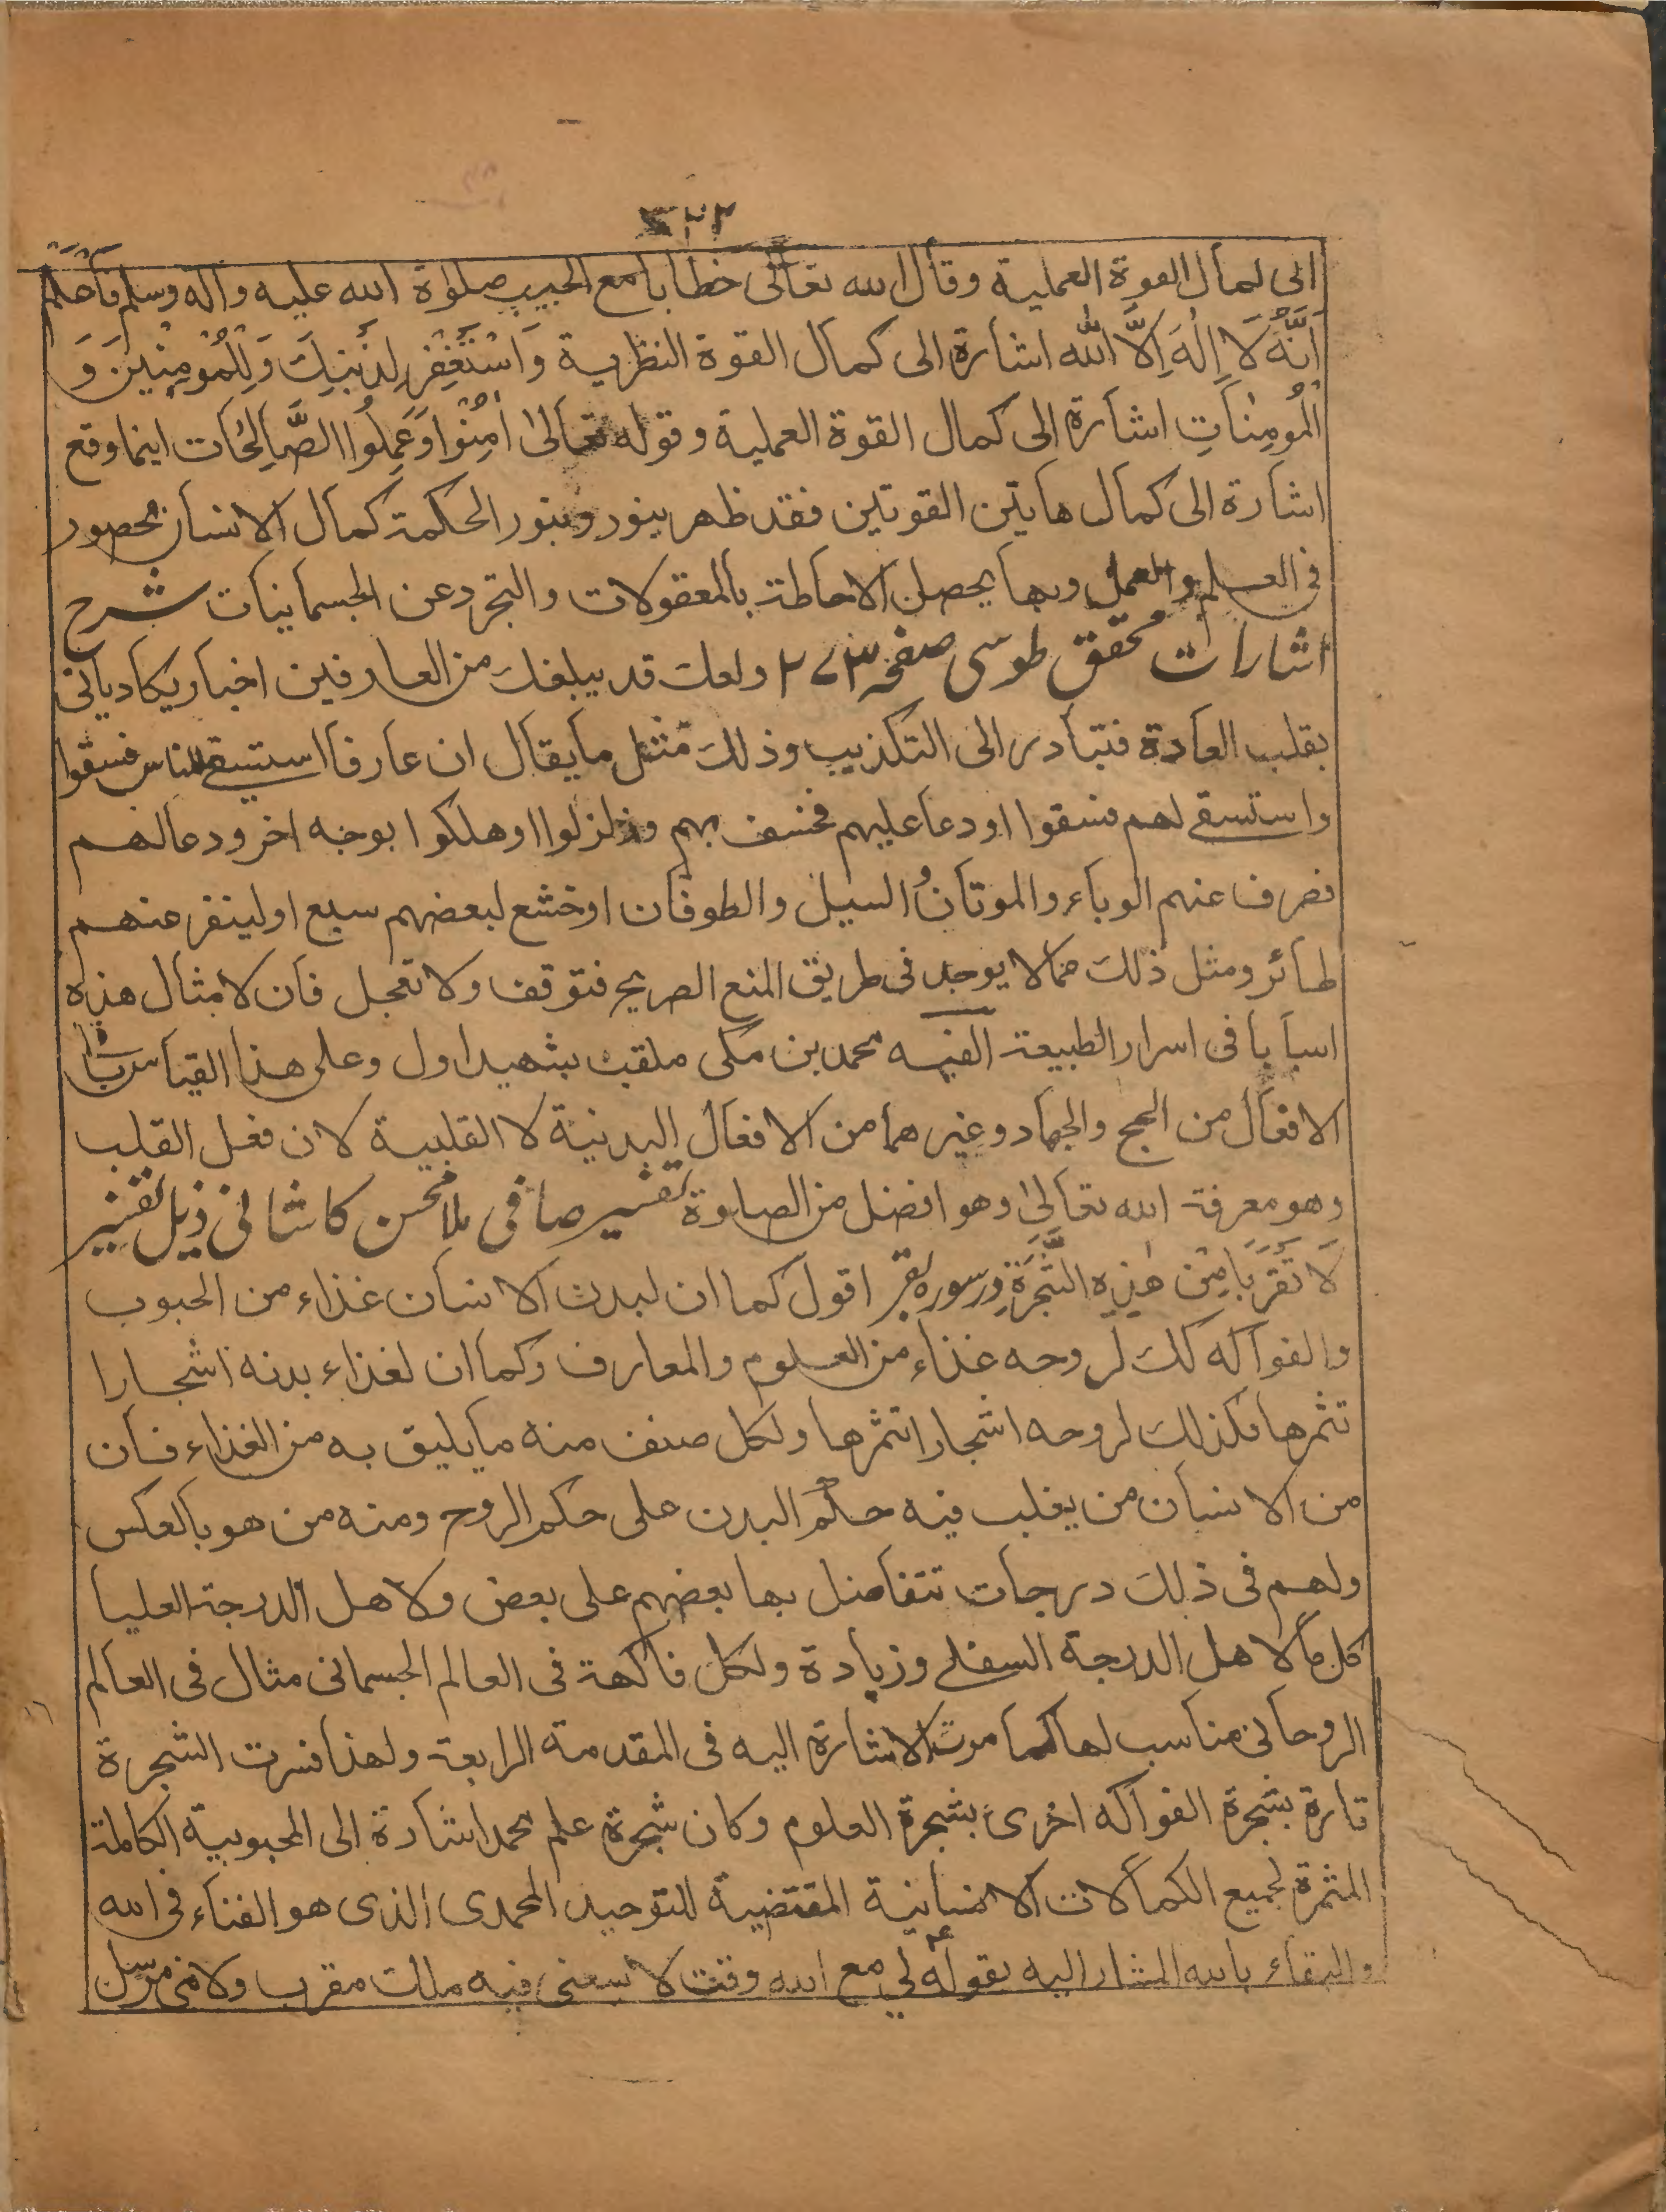 الى كمال القوة العملية وقال الله تعالى خطابا مع الحبيب صلوٰة الله عليه واٰله وسلم فَاعْلَمْ
اَنَّهُ لَا اِلٰهَ اِلَّا اللّٰه اشارة الى كمال القوة النظرية وَاسْتَغْفِرْ لِذَنْبِكَ وَلِلْمُؤمِنِيْنَ وَ
المُومِنَاتِ اشارة الى كمال القوة العملية وقوله تعالىٰ اٰمِنُوا وَعَمِلُوا الصَّالِحَات اينما وقع
اشارة الى كمال هايتن القوتين فقد ظهر بنور وبنور الحكمة كمال الانسان محصور
فى العلم والعمل وبها يحصل الاحاطة بالمعقولات والتجرد عن الجسمانيات شرح
اشارات محقق طوسى صفحہ ۲۷۳ ولعلك قد يبلغك من العارفين اخبار يكاد ياتى
بقلب العادة فتبادر الى التكذيب وذلك مثل ما يقال ان عارفا استسقے للناس فسقوا
واستسقے لهم فسقوا او دعا عليهم فخسف بهم وزلزلوا او هلكوا بوجه اخر ودعا لهم
فصرف عنهم الوباء والموتان السيل والطوفان او خشع لبعضهم سبع او لينفر عنهم
طائر ومثل ذلك مما لا يوجد فى طريق المنع الصريح فتوقف ولا تعجل فان لامثال هذه
اسبابا فى اسرار الطبيعة الفيه محمد بن مكى ملقب بشهيد اول وعلى هذا القياس
الافعال من الحج والجهاد وغيرهما من الافعال البدنية لا القلبية لان فعل القلب
وهو معرفة الله تعالىٰ وهو افضل من الصلوة تفسير صافى ملا محسن كاشانى ذيل تفسير
لَا تَقْرَبَا مِنْ هٰذِه الشَّجَرَةِ در سوره بقر اقول كما ان لبدن الانسان غذاء من الحبوب
والفواكه كك لروحه غذاء من العلوم والمعارف وكما ان لغذاء بدنه اشجارا
تثمرها فكذلك لروحه اشجارا تثمرها ولكل صنف منه ما يليق به من الغذاء فان
من الانسان من يغلب فيه حكم البدن على حكم الروح ومنه من هو بالعكس
ولهم فى ذلك درجات تتفاضل بها بعضهم على بعض ولاهل الدرجة العليا
كل ما لاهل الدرجة السفلے وزيادة ولكل فاكهة فى العالم الجسمانى مثال فى العالم
الروحانى مناسب لها كما مرت الاشارة اليه فى المقدمة الرابعة ولهذا فسرت الشجرة
تارة بشجرة الفواكه اخرىٰ بشجرة العلوم وكان شجرة علم محمد اشارة الى المحبوبية الكاملة
المثمرة لجميع الكمالات الانسانية المقتضية للتوحيد المحمدى الذى هو الفناء فى الله
والبقاء بالله المشار اليه بقوله لي مع الله وقت لا يسعنى فيه ملك مقرب ولا نبى مرسل